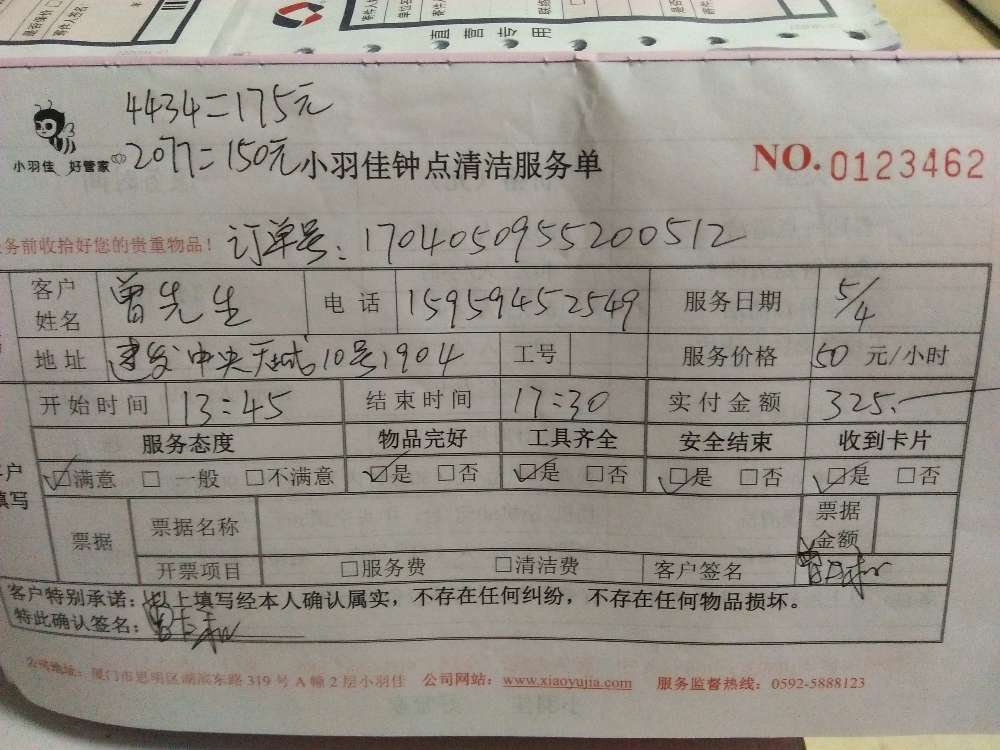 直营专用
4434=175元
2077=150元
小羽佳 好管家
小羽佳钟点清洁服务单
NO. 0123462
务前收拾好您的贵重物品！ 订单号：1704050955200512
客户姓名 曾先生 电话 15959452549 服务日期 5/4
地址 建发中央天城10号1904 工号 服务价格 50 元/小时
开始时间 13:45 结束时间 17:30 实付金额 325.—
服务态度 物品完好 工具齐全 安全结束 收到卡片
☑满意 □一般 □不满意 ☑是 □否 ☑是 □否 ☑是 □否 ☑是 □否
票据 票据名称 票据金额
开票项目 □服务费 □清洁费 客户签名
客户特别承诺：以上填写经本人确认属实，不存在任何纠纷，不存在任何物品损坏。
特此确认签名：
公司地址：厦门市思明区湖滨东路 319 号 A 幢 2 层小羽佳 公司网站：www.xiaoyujia.com 服务监督热线：0592-5888123